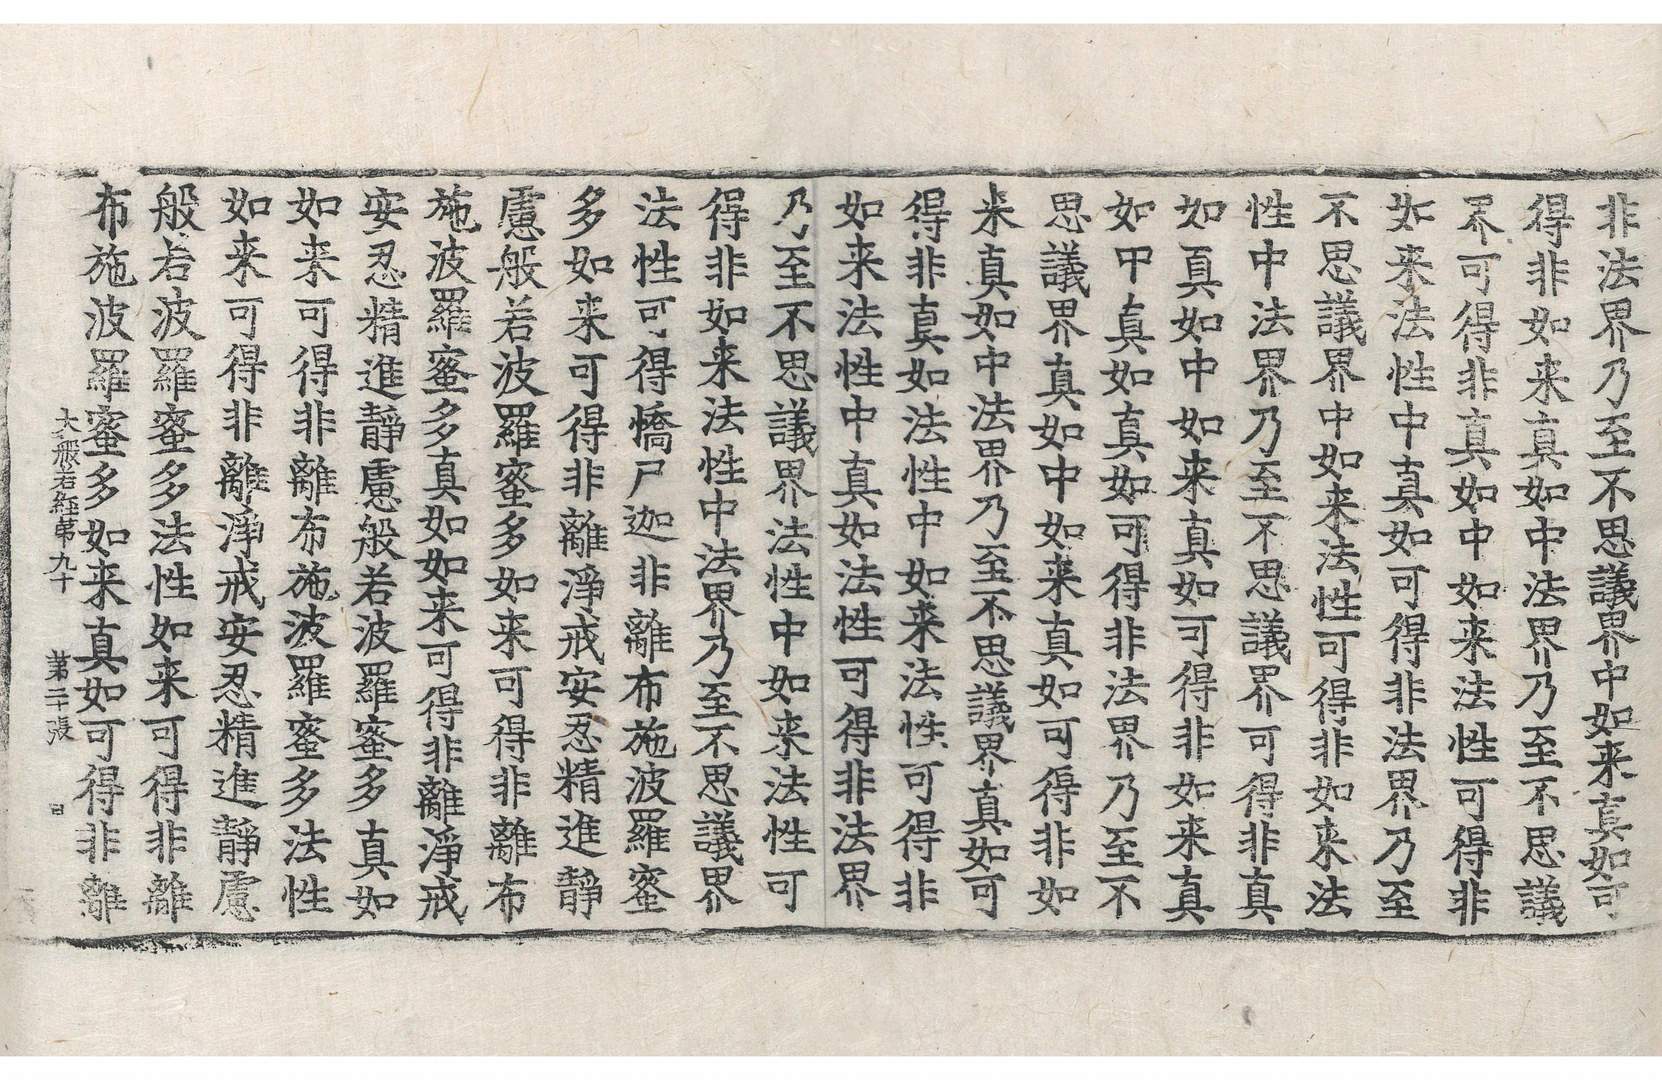 非法界乃至不思議界中如来真如可
得非如来真如中法界乃至不思議
界可得非真如中如来法性可得非
如来法性中真如可得非法界乃至
不思議界中如来法性可得非如来法
性中法界乃至不思議界可得非真
如真如中如来真如可得非如来真
如中真如真如可得非法界乃至不
思議界真如中如来真如可得非如
来真如中法界乃至不思議界真如可
得非真如法性中如来法性可得非
如来法性中真如法性可得非法界
乃至不思議界法性中如来法性可
得非如来法性中法界乃至不思議界
法性可得憍尸迦非離布施波羅蜜
多如来可得非離淨戒安忍精進靜
慮般若波羅蜜多如来可得非離布
施波羅蜜多真如如来可得非離淨戒
安忍精進靜慮般若波羅蜜多真如
如来可得非離布施波羅蜜多法性
如来可得非離淨戒安忍精進靜慮
般若波羅蜜多法性如来可得非離
布施波羅蜜多如来真如可得非離
大般若経第九十 第二十張